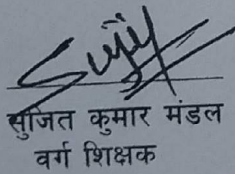 Sujit
सुजित कुमार मंडल
वर्ग शिक्षक